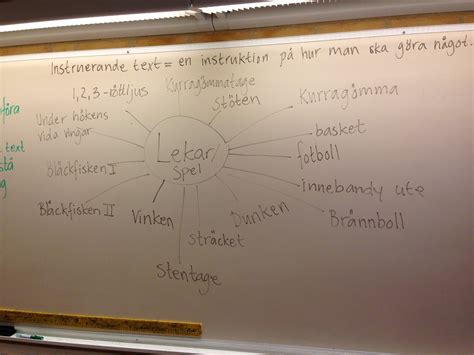 Instruerande text = en instruktion på hur man ska göra något.
1, 2, 3 - rött ljus
Kurragömmatage
Stöten
Kurragömma
Under hökens
vida vingar
basket
fotboll
Lekar/
Spel
Bläckfisken I
innebandy ute
Bläckfisken II
Vinken
Dunken
Brännboll
Sträcket
Stentage
text